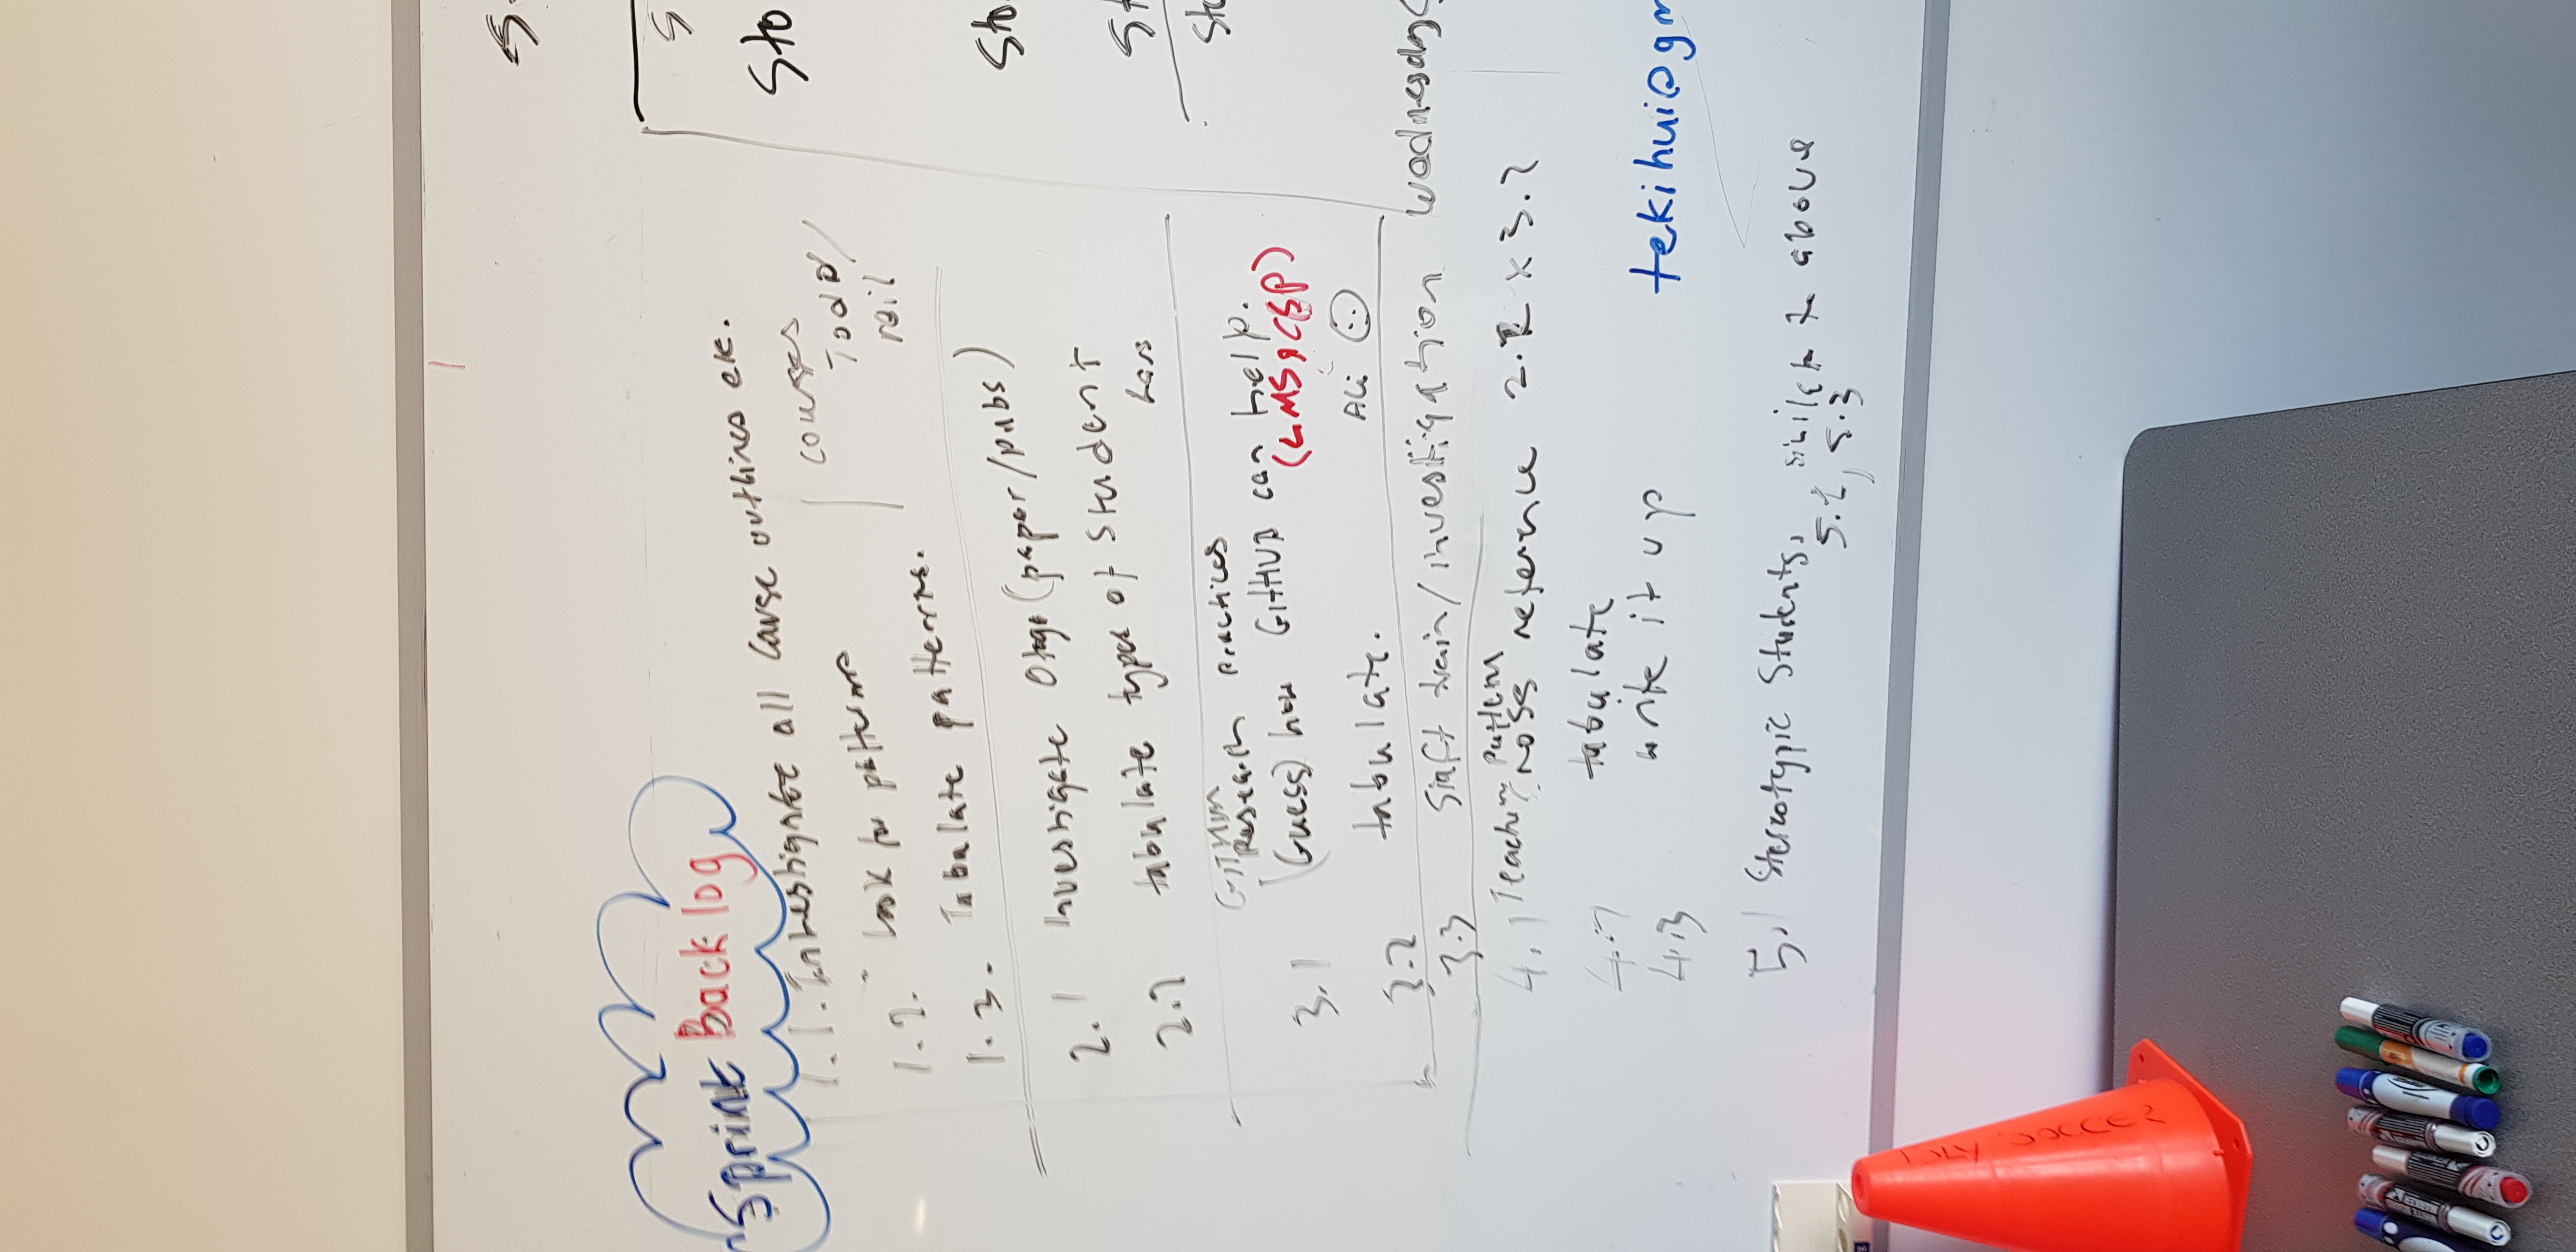 Sprint Backlog
1.1. Investigate all Course outlines etc.
1.2. Look for patterns
courses
Todd/
neil
1.3. Tabulate patterns.
2.1 Investigate Otago (paper/pubs)
2.2 tabulate types of student
Lars
Research practices
3.1 (Guess) how GITHUB can help.
(LMS, CSP)
3.2 tabulate.
Ali
3.3 Staff train/investigation Wednesday
4.1 Teaching pattern
cross reference 2.2 x 3.2
4.2 tabulate
4.3 write it up
tekihui@gm
5.1 Stereotypic Students, similar to above
5.2, 5.3
S
Sto
Sto
St
Sto